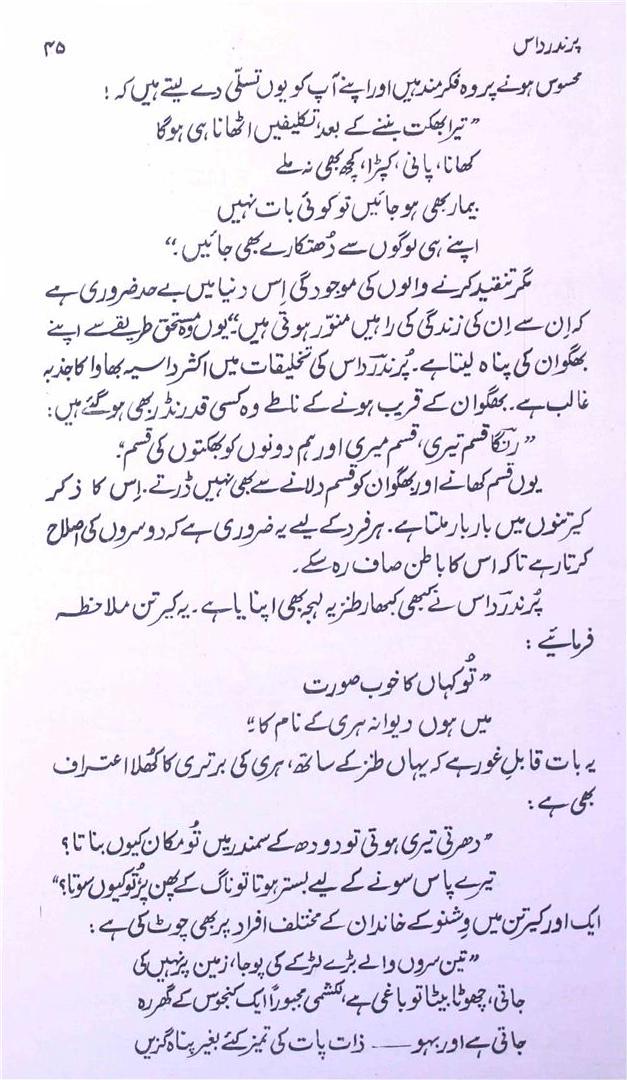 پرندر داس ۴۵
محسوس ہونے پر وہ فکر مند ہیں اور اپنے آپ کو یوں تسلّی دے لیتے ہیں کہ !
”تیرا بھکت بننے کے بعد، تکلیفیں اٹھانا ہی ہوگا
کھانا، پانی، کپڑا، کچھ بھی نہ ملے
بیمار بھی ہو جائیں تو کوئی بات نہیں
اپنے ہی لوگوں سے دُھتکارے بھی جائیں۔“
مگر تنقید کرنے والوں کی موجودگی اِس دنیا میں بے حد ضروری ہے
کہ اِن سے اِن کی زندگی کی راہیں منوّر ہوتی ہیں“ یوں وہ مستحق طریقے سے اپنے
بھگوان کی پناہ لیتا ہے۔ پُرندرؔداس کی تخلیقات میں اکثر داسیہ بھاوا کا جذبہ
غالب ہے۔ بھگوان کے قریب ہونے کے ناطے وہ کسی قدر نڈر بھی ہو گئے ہیں:
”رنگا قسم تیری، قسم میری اور ہم دونوں کو بھکتوں کی قسم“
یوں قسم کھانے اور بھگوان کو قسم دلانے سے بھی نہیں ڈرتے۔ اِس کا ذکر
کیرتنوں میں بار بار ملتا ہے۔ ہر فرد کے لیے یہ ضروری ہے کہ دوسروں کی اصلاح
کرتا رہے تاکہ اس کا باطن صاف رہ سکے۔
پُرندرؔداس نے کبھی کبھار طنزیہ لہجہ بھی اپنایا ہے۔ یہ کیرتن ملاحظہ
فرمائیے :
”تُو کہاں کا خوب صورت
میں ہوں دیوانہ ہری کے نام کا۔“
یہ بات قابلِ غور ہے کہ یہاں طنز کے ساتھ، ہری کی برتری کا کُھلا اعتراف
بھی ہے :
”دھرتی تیری ہوتی تو دودھ کے سمندر میں تُو مکان کیوں بناتا؟
تیرے پاس سونے کے لیے بستر ہوتا تو ناگ کے پھن پر تُو کیوں سوتا؟“
ایک اور کیرتن میں وِشنو کے خاندان کے مختلف افراد پر بھی چوٹ کی ہے :
”تین سروں والے بڑے لڑکے کی پوجا، زمین پر نہیں کی
جاتی، چھوٹا بیٹا تو باغی ہے، لکشمی مجبوراً ایک کنجوس کے گھر رہ
جاتی ہے اور بہو —— ذات پات کی تمیز کئے بغیر پناہ گزیں